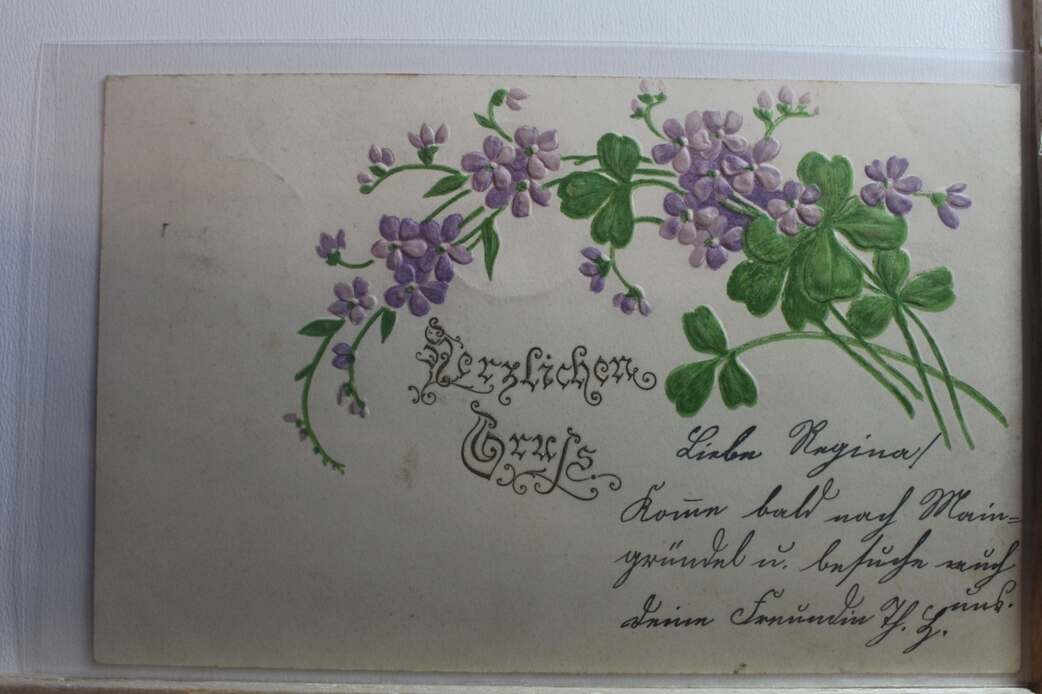 Herzlichen
Gruſs.
Liebe Regina!
Kom̅e bald nach Main=
gründel u. besuche auch
uns.
Deine Freundin Th. H.